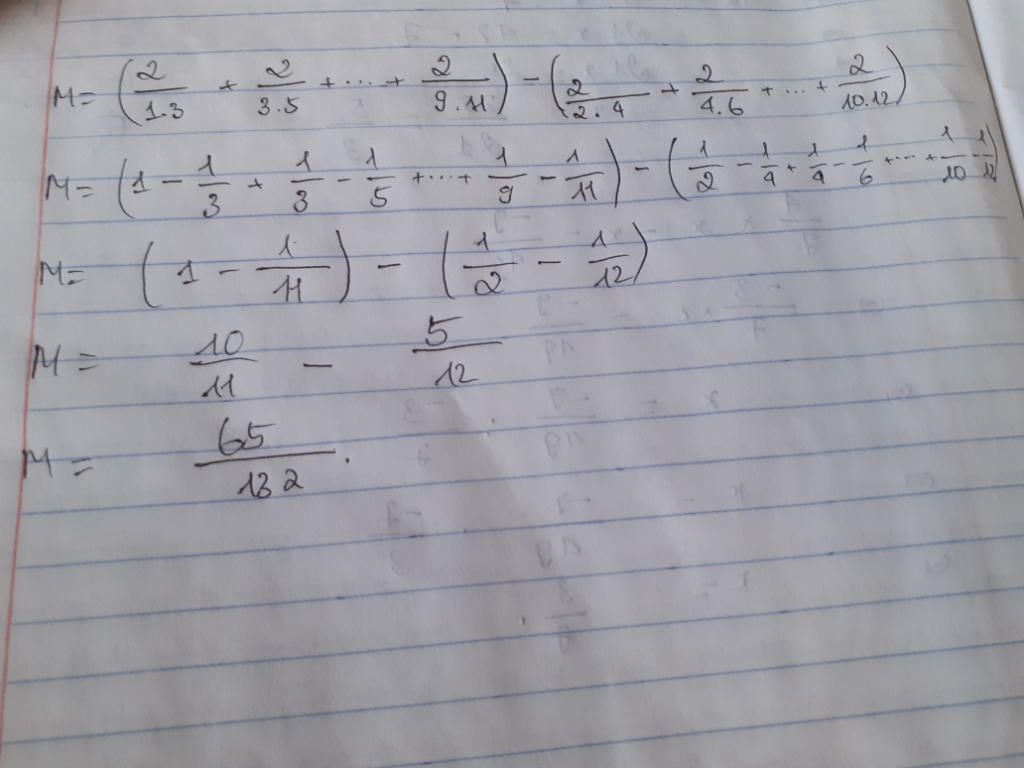 M = (2/1.3 + 2/3.5 + ... + 2/9.11) - (2/2.4 + 2/4.6 + ... + 2/10.12)
M = (1 - 1/3 + 1/3 - 1/5 + ... + 1/9 - 1/11) - (1/2 - 1/4 + 1/4 - 1/6 + ... + 1/10 - 1/12)
M = (1 - 1/11) - (1/2 - 1/12)
M = 10/11 - 5/12
M = 65/132.